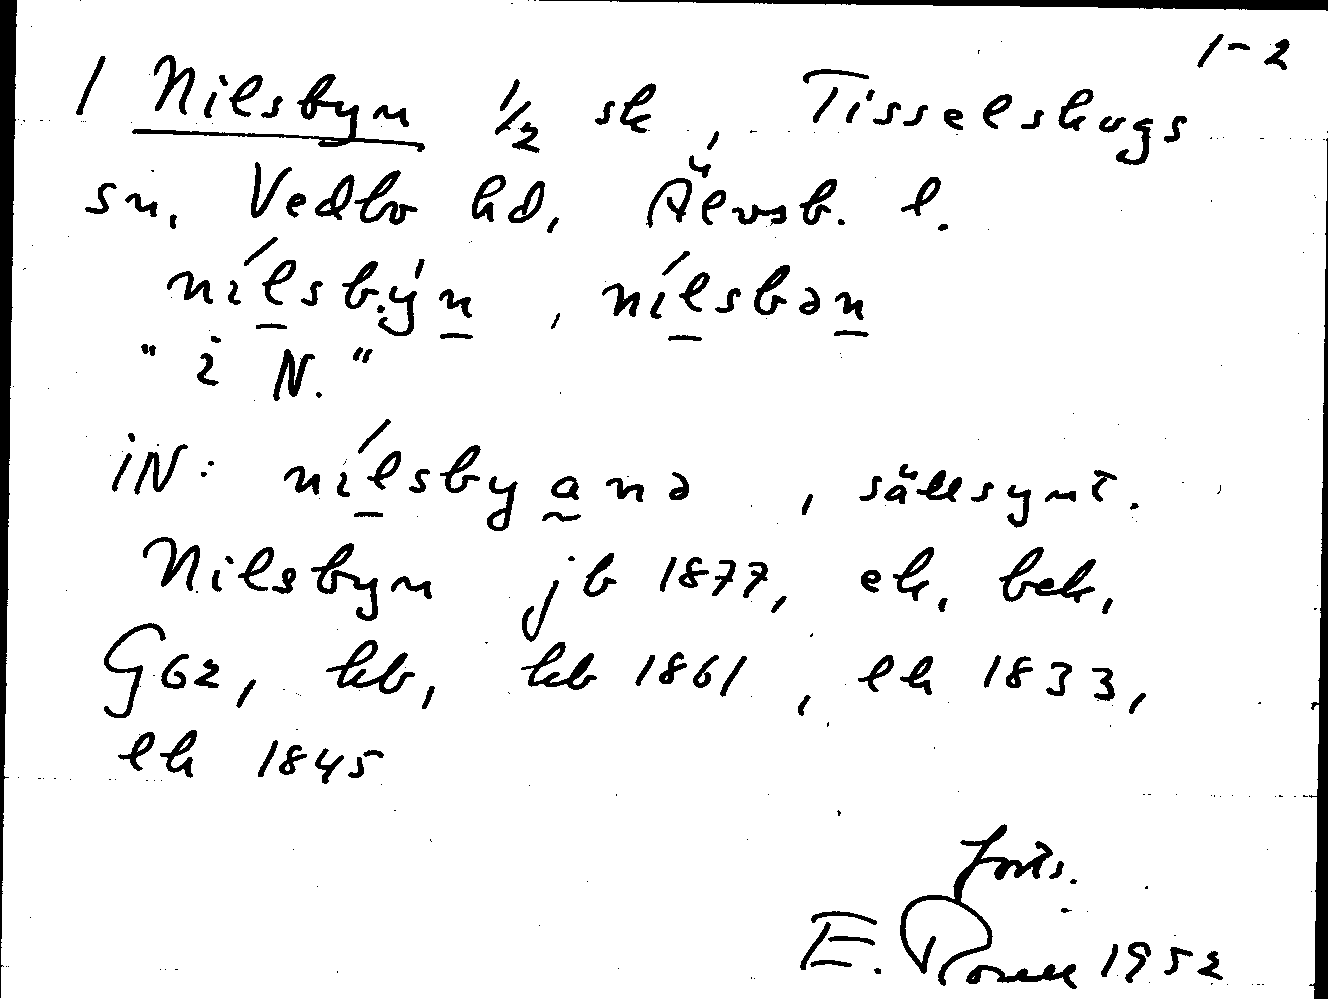 1-2
1 Nilsbyn 1/2 sk, Tisselskogs
sn, Vedbo hd, Älvsb. l.
nílsbýn, nílsbən
"i N."
iN: nílsbyanə, sällsynt.
Nilsbyn jb 1877, ek, bek,
G62, kb, kb 1861, lk 1833,
lk 1845
forts.
E. 1952